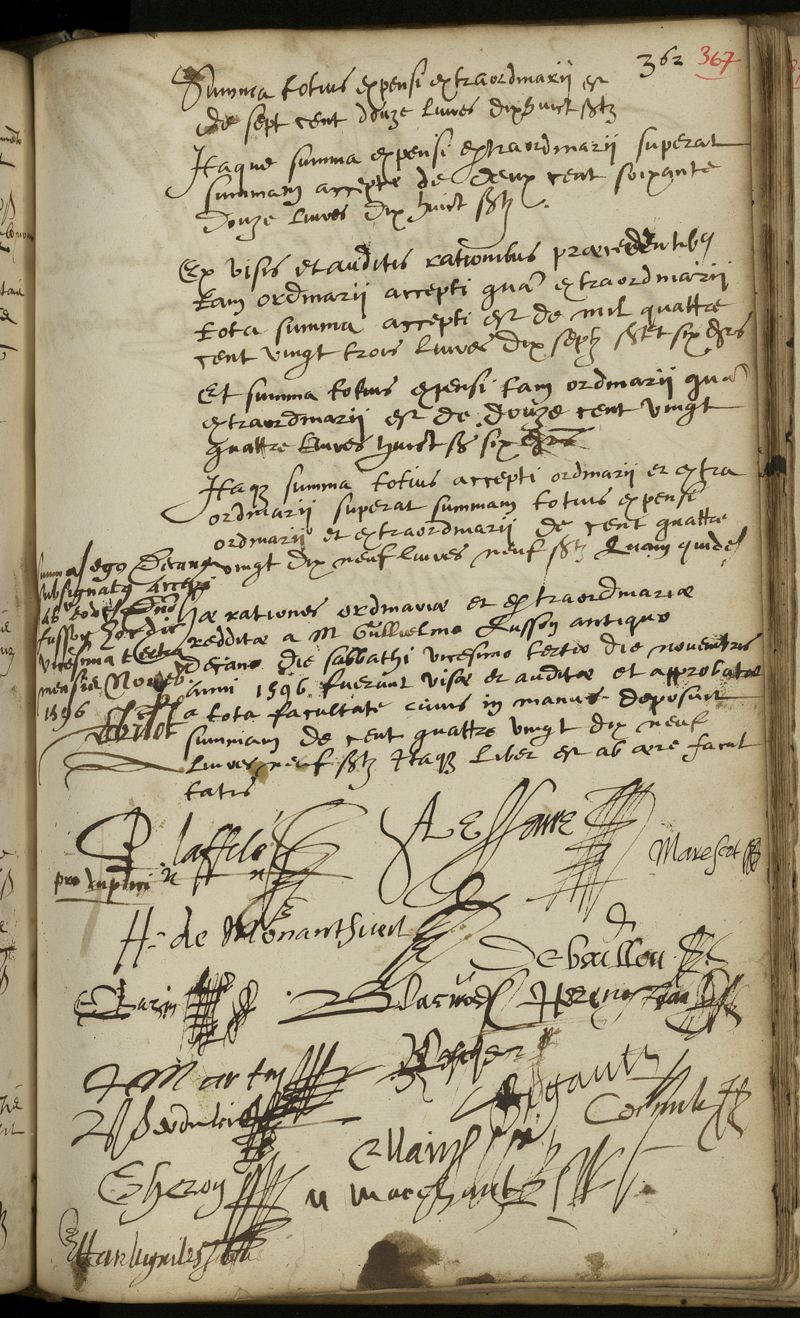 362 367
Summa totius expensi extraordinarii est
de sept cent douze livres dixhuict ss tz
Itaque summa expensi extraordinarii superat
summam accepti de deux cent soixante
douze livres dix huict ss tz.
Ex visis et auditis rationibus præcedentibus
tam ordinarii accepti quā extraordinarii
tota summa accepti est de mil quattre
cent vingt trois livres dix sept ss et six drs
Et summa totius expensi tam ordinarii quā
extraordinarii est de douze cent vingt
quattre livres huict ss six
Itaq; summa totius accepti ordinarii et extra
ordinarii superat summam totius expensi
ordinarii et extraordinarii de cent quattre
vingt dix neuf livres neuf ss tz Quam quidē
summā ego Decanus
subsignatus accepi
ab eodem Dno
Lusson hodie
vicesima tertia
mensis Novēb.
1596
Hæ rationes ordinariæ et extraordinariæ
redditæ a M Guillielmo Lusson antiquo
Decano die sabbathi vicesimo tertio die novembris
anni 1596. fuerunt visæ et auditæ et approbatæ
a tota facultate cuius in manus deposuit
summam de cent quattre vingt dix neuf
livres neuf ss tz Itaq; liber est ab ære facul
tatis
G. laffilé
Marescot
H. de Monantheuil
De baillou
Marty
Cousinot
Cheron
N Marchant